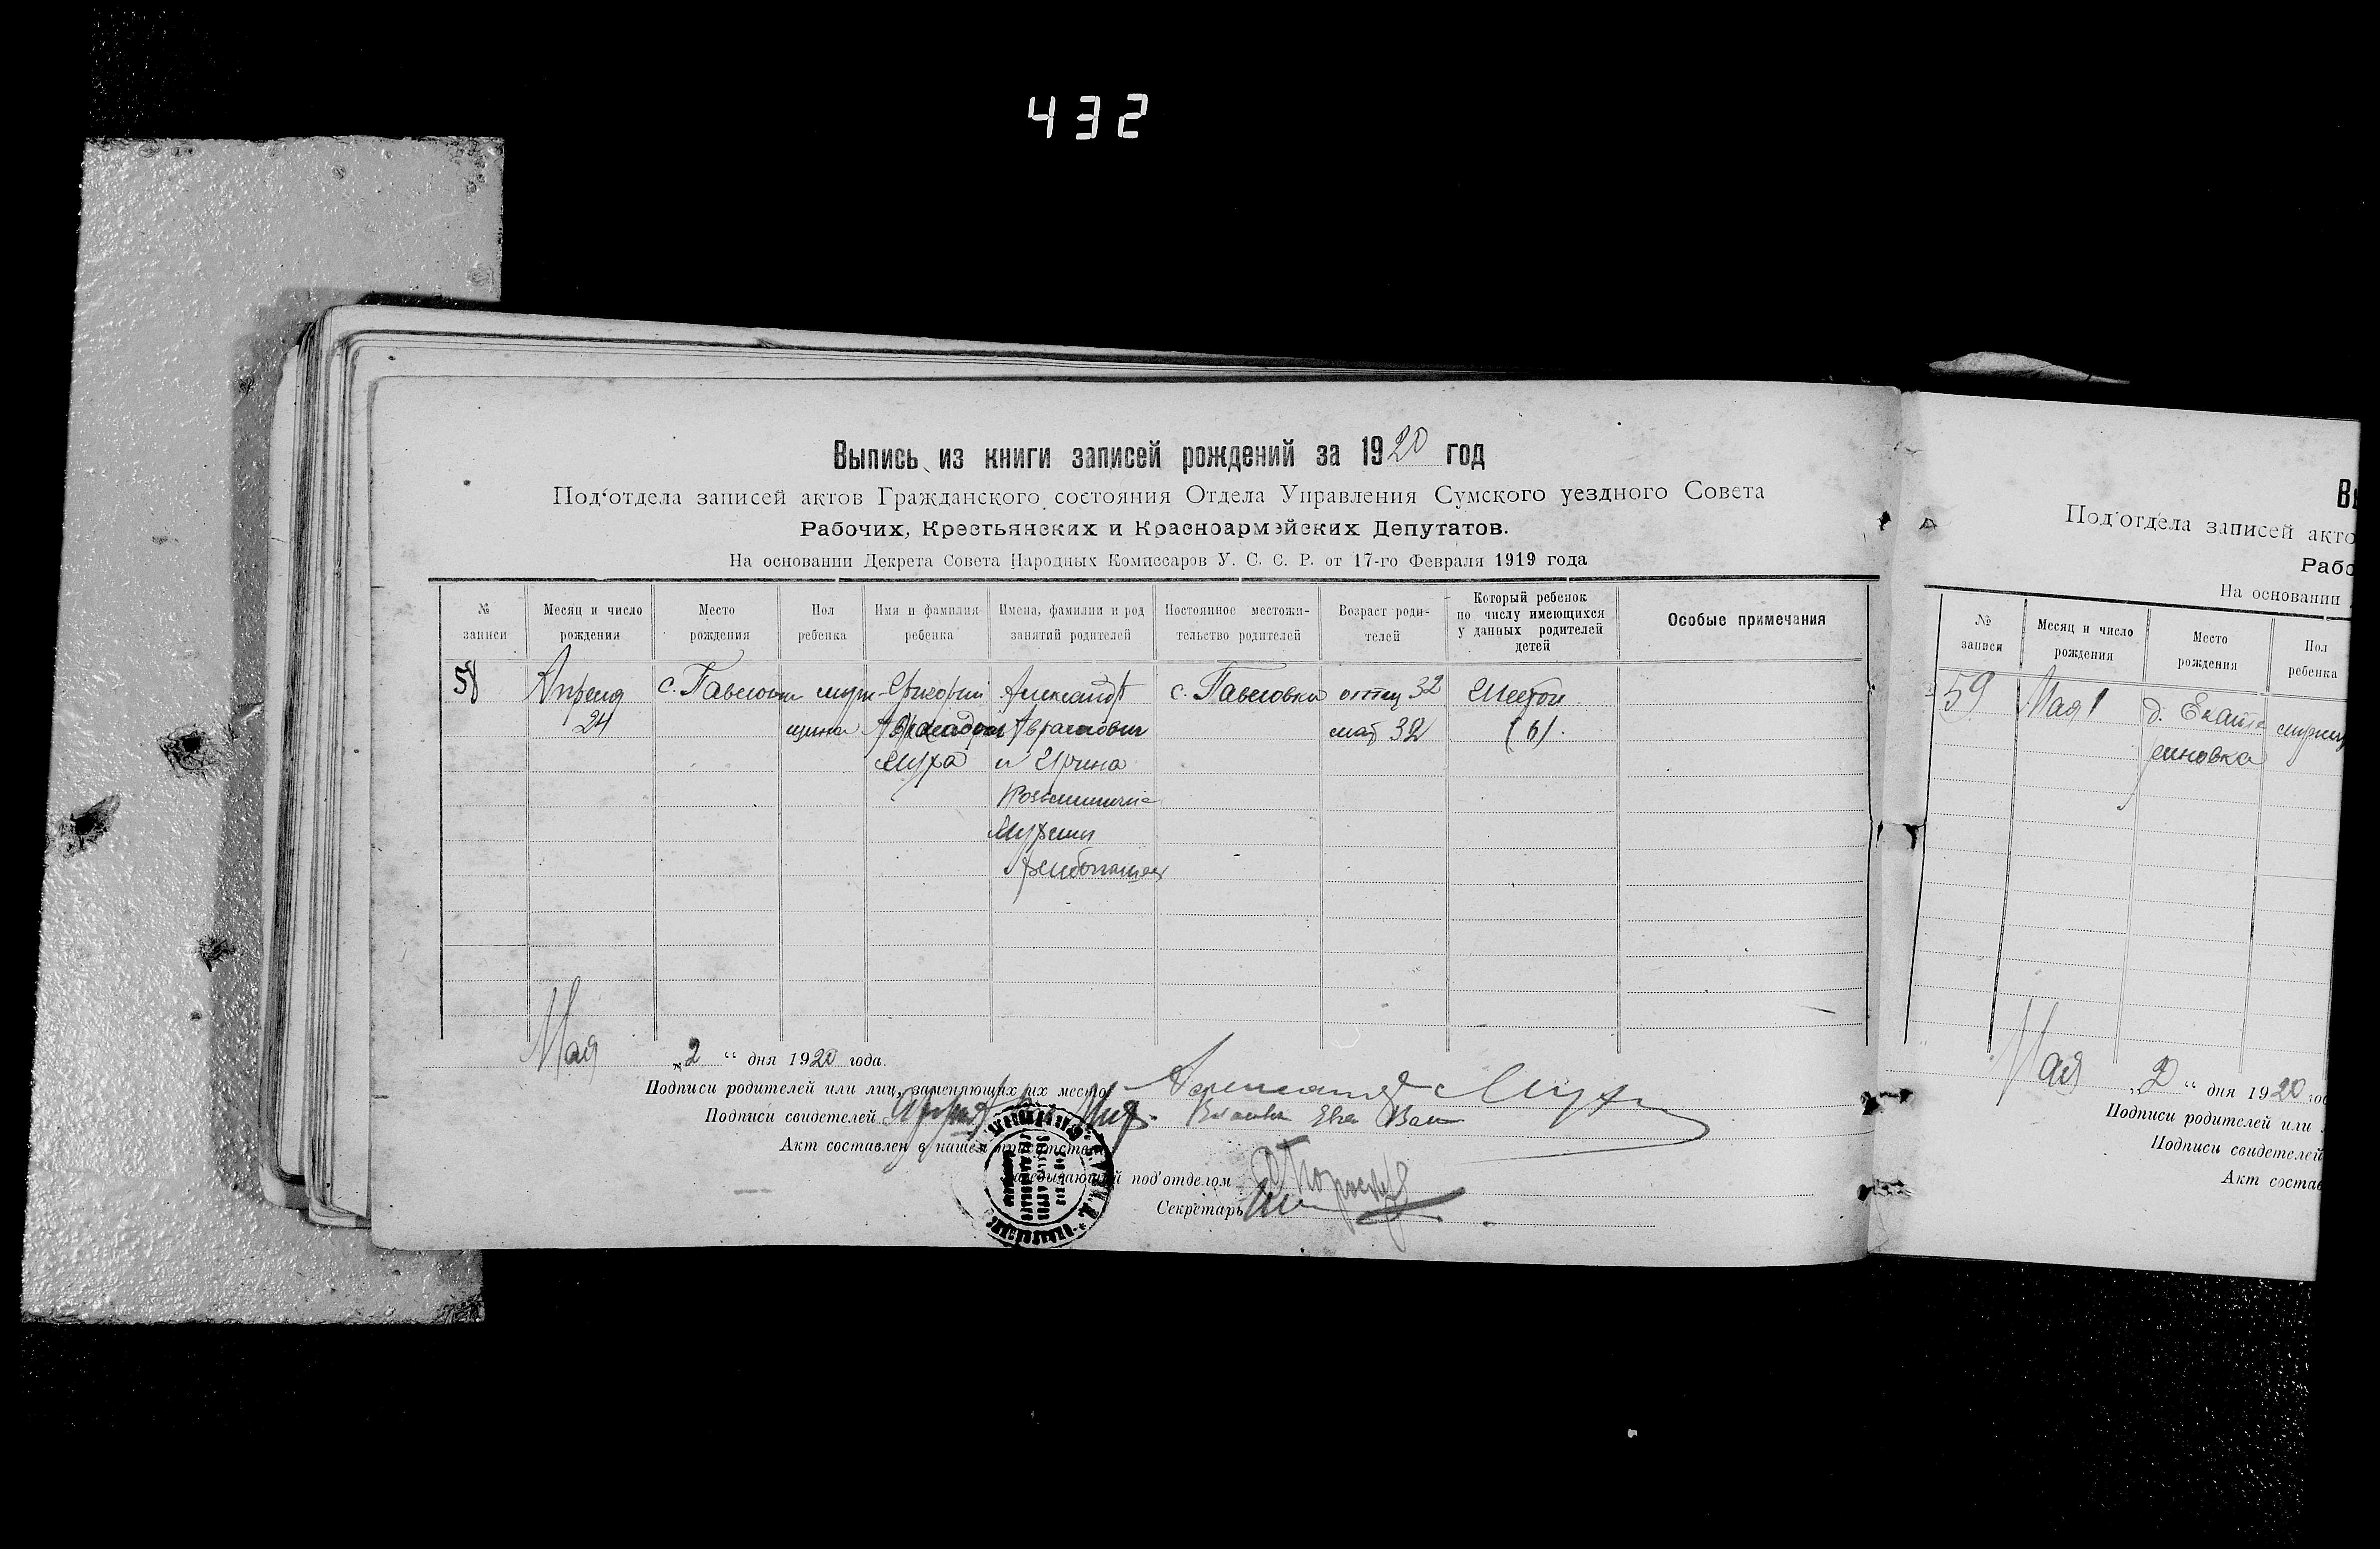 432
Выпись из книги записей рождений за 1920 год
Под'отдела записей актов Гражданского состояния Отдела Управления Сумского уездного Совета
Рабочих, Крестьянских и Красноармейских Депутатов.
На основании Декрета Совета Народных Комиссаров У. С. С. Р. от 17-го Февраля 1919 года
№ записи
Месяц и число рождения
Место рождения
Пол ребенка
Имя и фамилия ребенка
Имена, фамилии и род занятий родителей
Постоянное местожительство родителей
Возраст родителей
Который ребенок по числу имеющихся у данных родителей детей
Особые примечания
58 Апреля с. Павловка мущ- Григорий Александр с. Павловка отец 32 Шестой
24 щина Аврамович мать 32 (6).
Муха и Ирина
Козьминична
Мухины
Хлебопашец
Мая „2“ дня 1920 года.
Подписи родителей или лиц, заменяющих их место Александр Муха
Подписи свидетелей
Акт составлен в нашем присутствии
Заведывающий под'отделом
Секретарь
Вы
Под'отдела записей акто
Рабо
На основании
№ записи
Месяц и число рождения
Место рождения
Пол ребенка
59 Мая 1 д. Екате
риновка
Мая „2“ дня 1920 год
Подписи родителей или
Подписи свидетелей
Акт состав